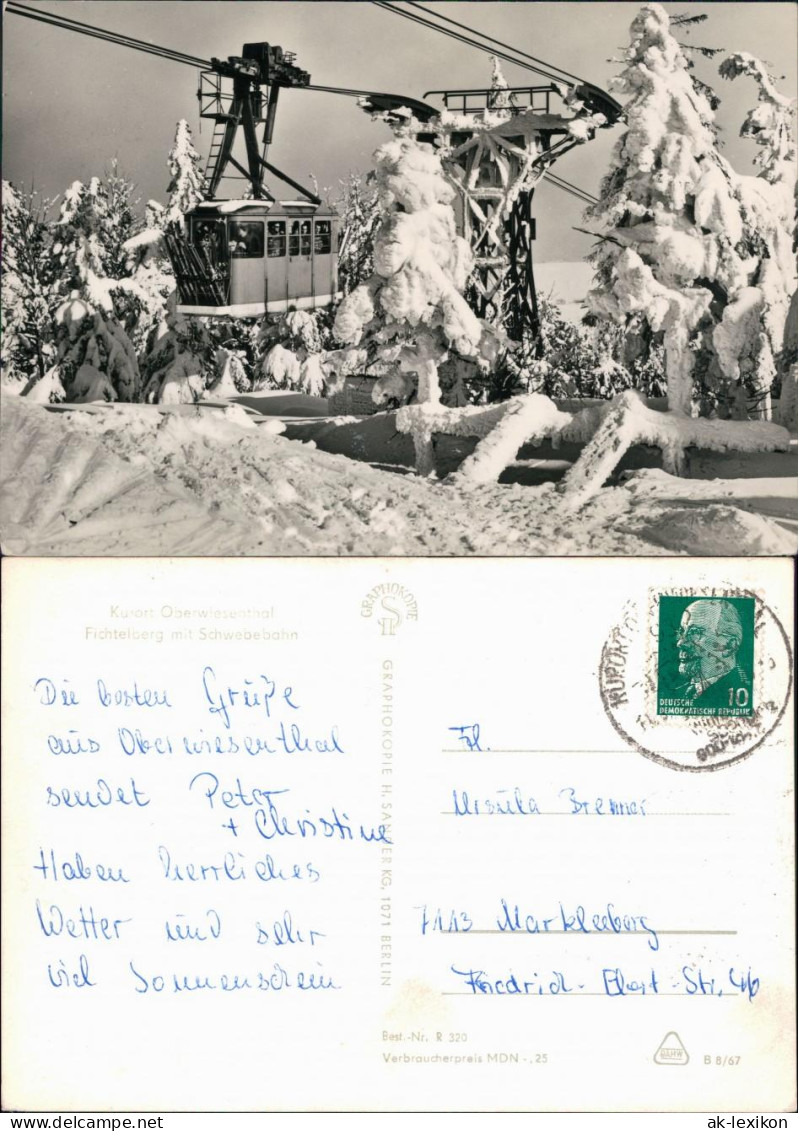 Kurort Oberwiesenthal
Fichtelberg mit Schwebebahn
Die besten Grüße
aus Oberwiesenthal
sendet Peter
+ Christine
Haben herrliches
Wetter und sehr
viel Sonnenschein
GRAPHOKOPIE
GRAPHOKOPIE H. SANDER KG, 1071 BERLIN
DEUTSCHE
DEMOKRATISCHE REPUBLIK
10
Frl.
Ursula Brenner
7113 Markkleeberg
Friedrich-Ebert-Str. 46
Best.-Nr. R 320
Verbraucherpreis MDN -,25
B 8/67
ak-lexikon.com